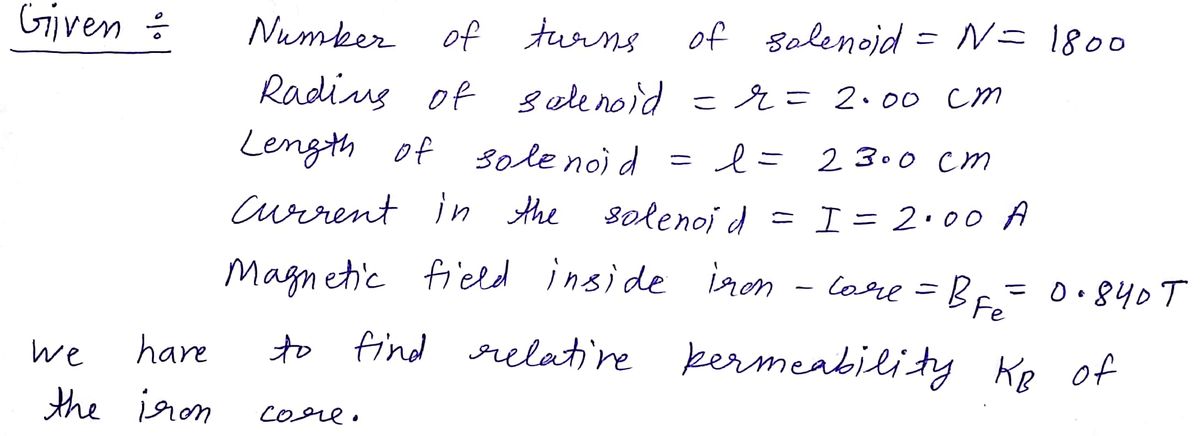 Given ÷ Number of turns of solenoid = N = 1800
Radius of solenoid = r = 2.00 cm
Length of solenoid = l = 23.0 cm
Current in the solenoid = I = 2.00 A
Magnetic field inside iron - core = B_Fe = 0.840 T
We have to find relative permeability K_B of
the iron core.